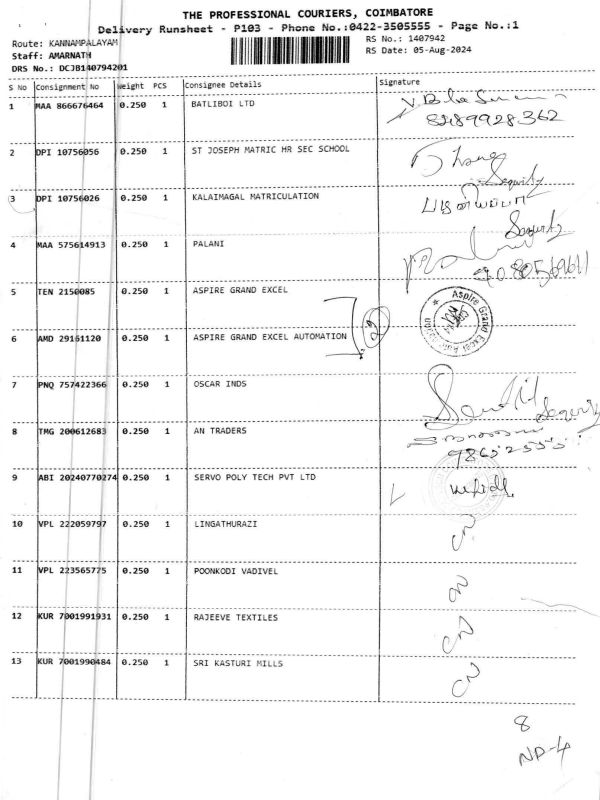 THE PROFESSIONAL COURIERS, COIMBATORE
Delivery Runsheet - P103 - Phone No.:0422-3505555 - Page No.:1
Route: KANNAMPALAYAM
RS No.: 1407942
Staff: AMARNATH
RS Date: 05-Aug-2024
DRS No.: DCJB140794201
S No Consignment No Weight PCS Consignee Details Signature
1 MAA 866676464 0.250 1 BATLIBOI LTD
8289928362
2 DPI 10756056 0.250 1 ST JOSEPH MATRIC HR SEC SCHOOL
Sequrity
3 DPI 10756026 0.250 1 KALAIMAGAL MATRICULATION
Sequrity
4 MAA 575614913 0.250 1 PALANI
5 TEN 2150085 0.250 1 ASPIRE GRAND EXCEL
Aspire Grand Excel
2
6 AMD 29161120 0.250 1 ASPIRE GRAND EXCEL AUTOMATION
7 PNQ 757422366 0.250 1 OSCAR INDS
Sequrity
8 TMG 200612683 0.250 1 AN TRADERS
9 ABI 20240770274 0.250 1 SERVO POLY TECH PVT LTD
10 VPL 222059797 0.250 1 LINGATHURAZI
11 VPL 223565775 0.250 1 POONKODI VADIVEL
12 KUR 7001991931 0.250 1 RAJEEVE TEXTILES
13 KUR 7001990484 0.250 1 SRI KASTURI MILLS
8
ND-4